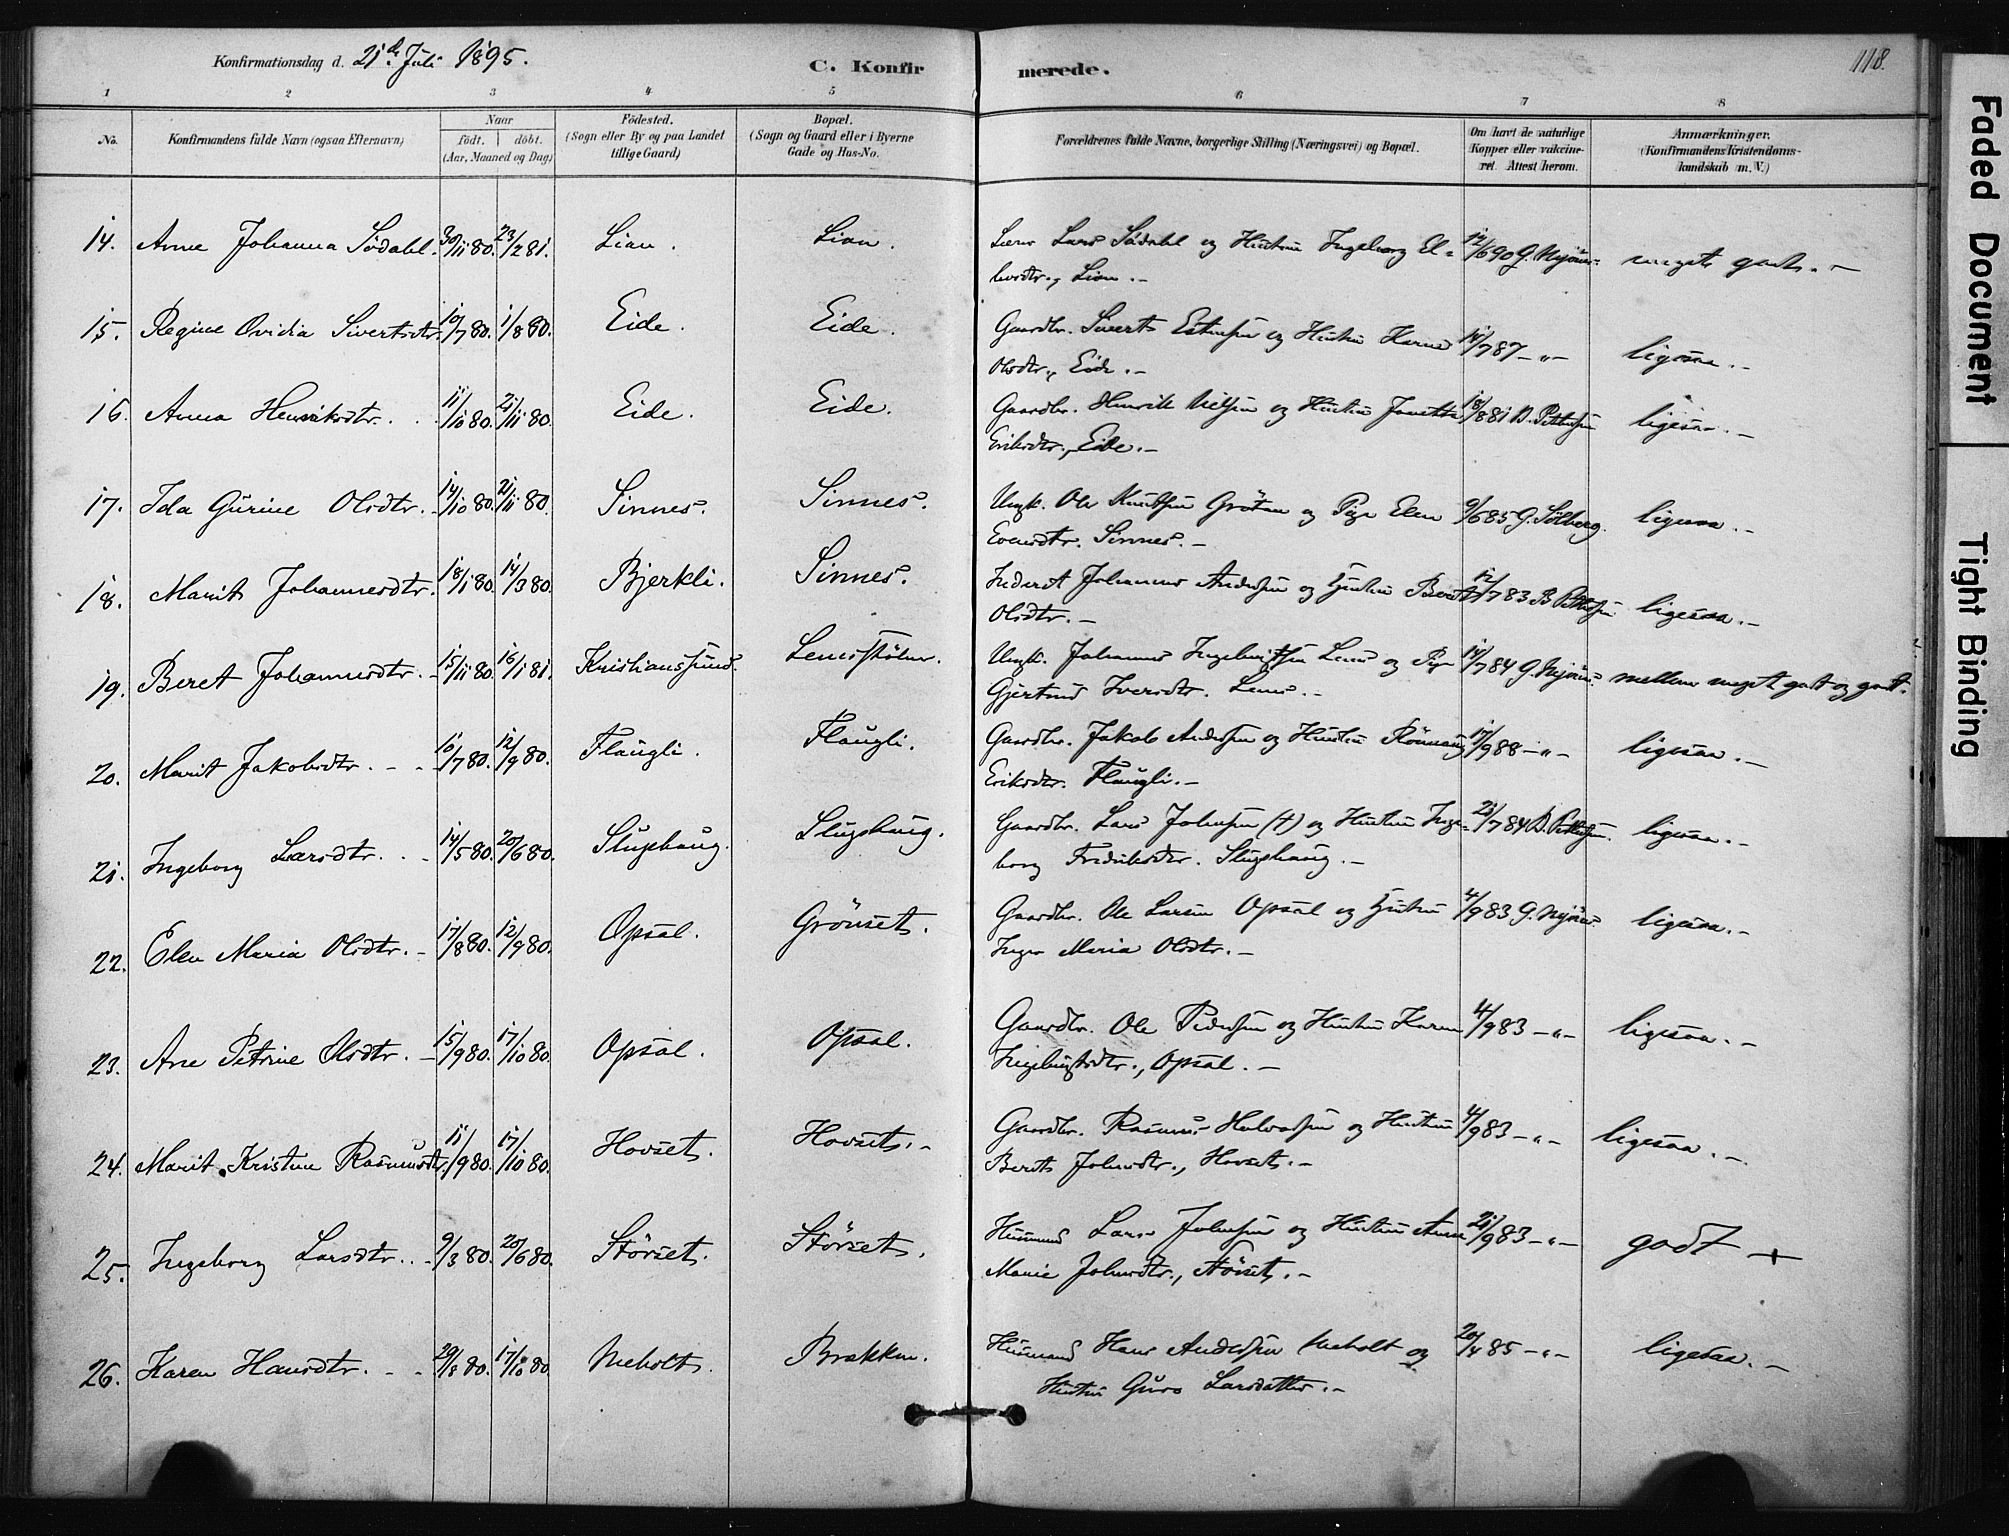 Konfirmationsdag d. 21de Juli 1895.
C. Konfirmerede.
118.
1 2 3 4 5 6 7 8
No. Konfirmandens fulde Navn (ogsaa Efternavn) Naar födt. döbt. (Aar, Maaned og Dag) Födested. (Sogn eller By og paa Landet tillige Gaard) Bopæl. (Sogn og Gaard eller i Byerne Gade og Hus-No. Forældrenes fulde Navne, borgerlige Stilling (Næringsvei) og Bopæl. Om havt de naturlige Kopper eller vakcineret. Attest herom. Anmærkninger. (Konfirmandens Kristendomskundskab m. V.)
14. Anne Johanna Sødahl. 30/11 80. 23/2 81. Lian. Lian. Lars Södahl og Hustru Ingeborg 12/6 90 meget godt. -
Lian. -
15. Regine Ovidia Sivertsdtr. 10/7 80. 1/8 80. Eide. Eide. Gaardbr. Sivert Estensen og Hustru Karen 14/7 87 - " - ligesaa. -
Olsdtr., Eide. -
16. Anna Henriksdtr. 11/10 80. 21/11 80. Eide. Eide. Gaardbr. Henrik Nilsen og Hustru 18/8 81 B. Pettersen ligesaa. -
Eriksdtr., Eide. -
17. Ida Gurine Olsdtr. 14/10 80. 21/11 80. Sinnes. Sinnes. Ungk. Ole Knudsen Grötan og Pige Elen 9/6 85 G. Sölberg. ligesaa. -
Evensdtr. Sinnes. -
18. Marit Johannesdtr. 18/1 80. 14/3 80. Bjerkli. Sinnes. Inderst Johannes Andersen og Hustru Beret 12/7 83 B. Pettersen ligesaa. -
Olsdtr. -
19. Beret Johannesdtr. 15/11 80. 16/1 81. Kristianssund. Ungk. Johannes Ingebrigtsen og Pige 14/7 84 mellem meget godt og godt.
Gjertrud Iversdtr.
20. Marit Jakobsdtr. 10/7 80. 12/9 80. Flaugli. Flaugli. Gaardbr. Jakob Andersen og Hustru Rönnaug 17/9 88 - " - ligesaa. -
Eriksdtr. Flaugli. -
21. Ingeborg Larsdtr. 14/5 80. 20/6 80. Sluphaug. Slupshaug. Gaardbr. Lars Johnsen (†) og Hustru Inge- 21/7 84 B. Pettersen. ligesaa. -
borg Frederiksdtr. Slupshaug. -
22. Elen Maria Olsdtr. 17/8 80. 12/9 80. Opsal. Grönset. Gaardbr. Ole Larsen Opsal og Hustru 4/9 83 ligesaa. -
Inger Maria Olsdtr. -
23. Ane Petrine Olsdtr. 15/9 80. 17/10 80. Opsal. Opsal. Gaardbr. Ole Pedersen og Hustru Karen 4/9 83 - " - ligesaa. -
Ingebrigtsdtr., Opsal. -
24. Marit Kristine Rasmusdtr. 11/9 80. 17/10 80. Hovset. Hovset. - Gaardbr. Rasmus Halvorsen og Hustru 4/9 83 - " - ligesaa. -
Berit Johnsdtr., Hovset. -
25. Ingeborg Larsdtr. 9/3 80. 20/6 80. Störset. Störset. Husmand Lars Johnsen og Hustru Anne 21/9 83 - " - godt -
Marie Johnsdtr., Störset. -
26. Karen Hansdtr. 29/8 80. 17/10 80. Neholt. Brækken. Husmand Hans Andersen Neholt og 20/4 85 - " - ligesaa. -
Hustru Guro Larsdatter. -
Faded Document
Tight Binding